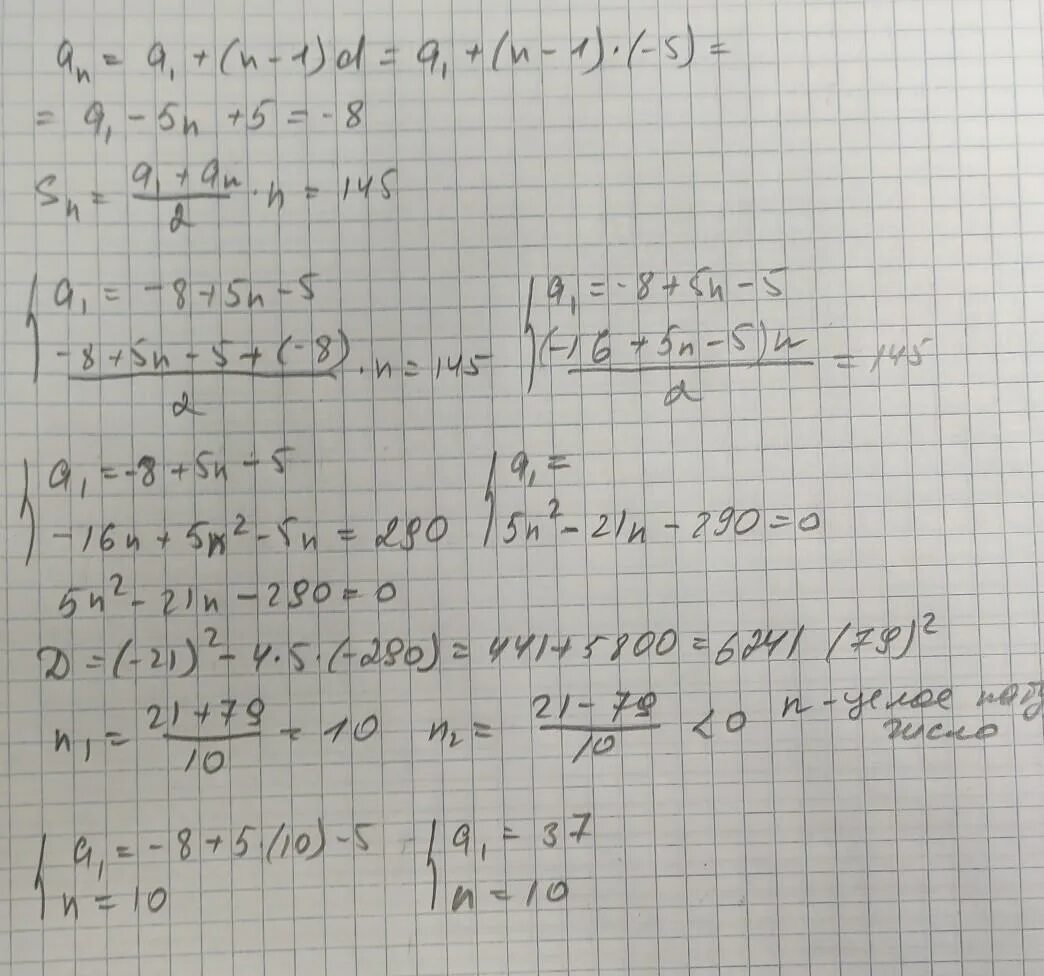 aₙ = a₁ + (n - 1)d = a₁ + (n - 1)·(-5) =
= a₁ - 5n + 5 = -8
Sₙ = (a₁ + aₙ)/2 · n = 145
{ a₁ = -8 + 5n - 5
(-8 + 5n - 5 + (-8))/2 · n = 145
{ a₁ = -8 + 5n - 5
((-16 + 5n - 5)n)/2 = 145
{ a₁ = -8 + 5n - 5
-16n + 5n² - 5n = 290
{ a₁ =
5n² - 21n - 290 = 0
5n² - 21n - 290 = 0
D = (-21)² - 4·5·(-290) = 441 + 5800 = 6241 (79)²
n₁ = (21 + 79)/10 = 10 n₂ = (21 - 79)/10 < 0 n - целое
число
{ a₁ = -8 + 5·(10) - 5
n = 10
{ a₁ = 37
n = 10